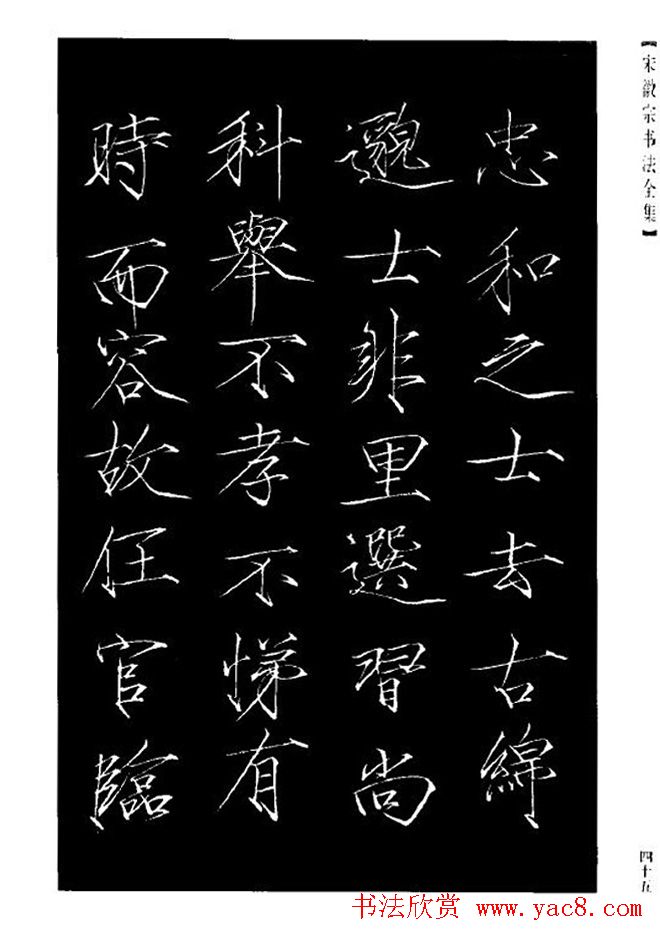 【宋徽宗书法全集】
忠和之士去古綿
邈士非里選習尚
科舉不孝不悌有
時而容故任官臨
四十五
书法欣赏 www.yac8.com